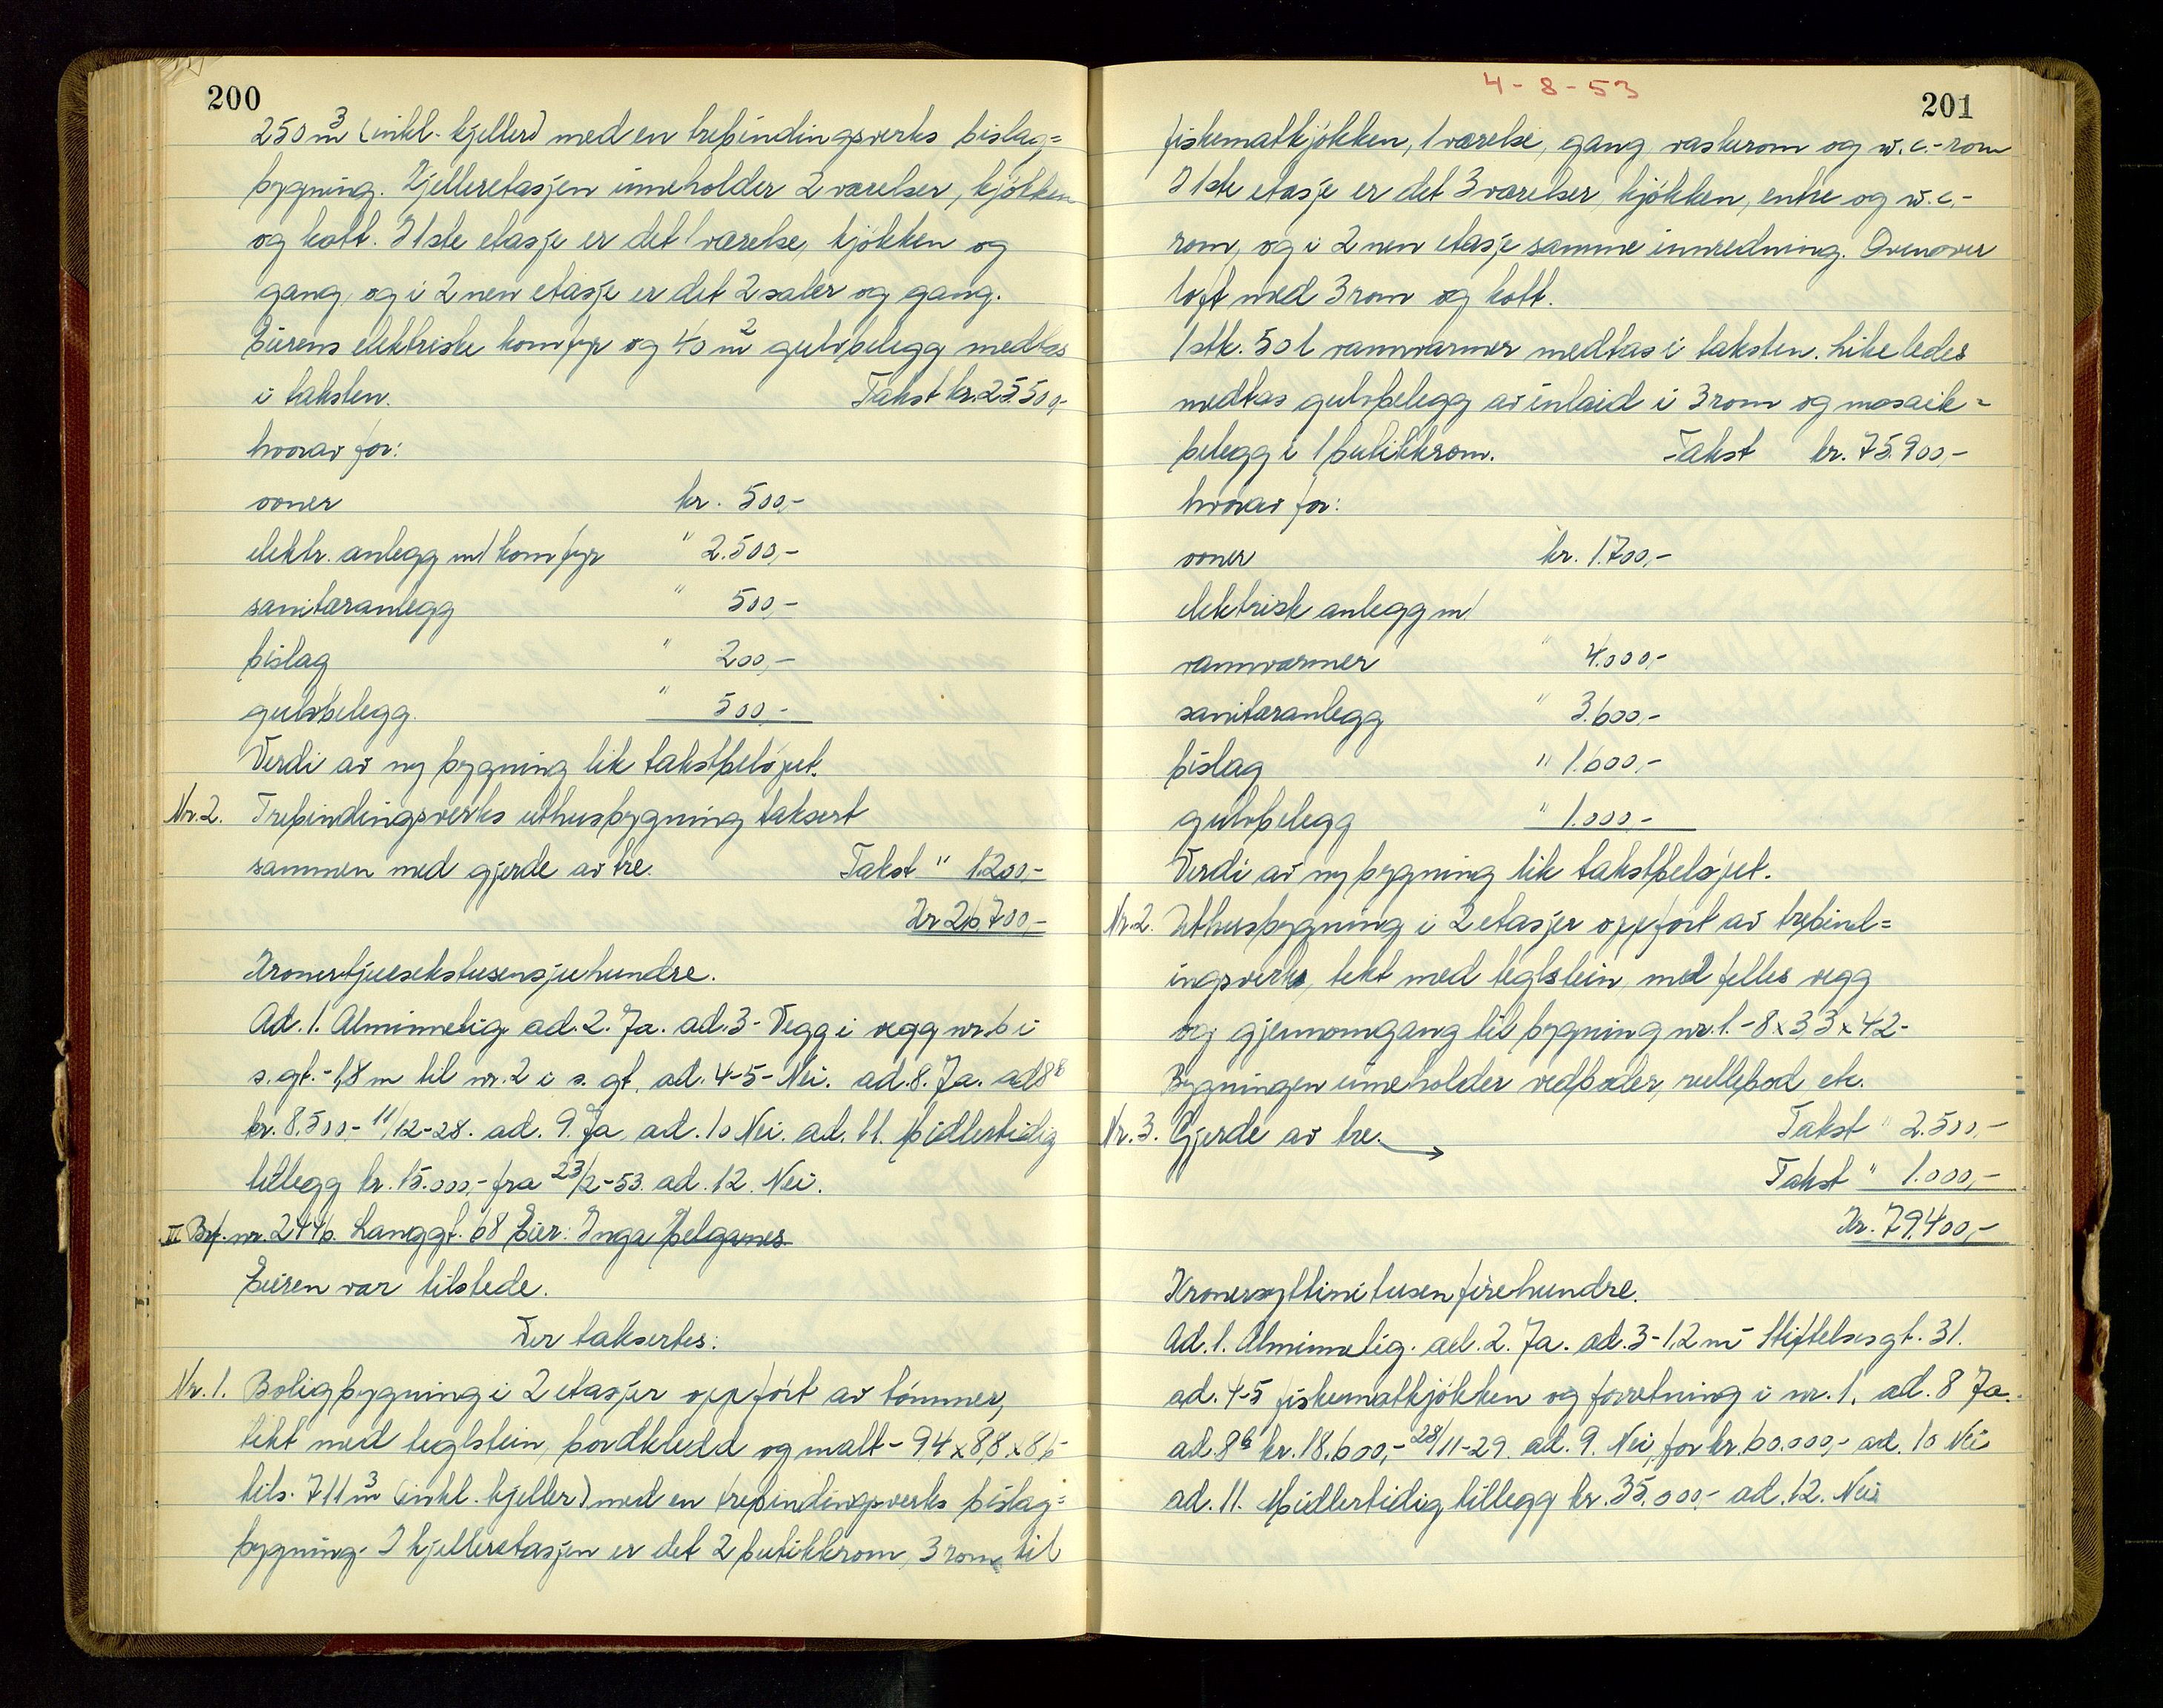 200
250 m³ (inkl. kjeller) med en trebindingsverks bislag=
bygning. Kjelleretasjen inneholder 2 værelser, kjøkken
og kott. I 1ste etasje er det 1 værelse, kjøkken og
gang, og i 2nen etasje er det 2 saler og gang.
Eierens elektriske komfyr og 40 m² gulvbelegg medtas
i taksten. Takst kr. 25.500,-
hvorav for:
ovner kr. 500,-
elektr. anlegg m/komfyr " 2.500,-
sanitæranlegg " 500,-
bislag " 200,-
gulvbelegg " 500,-
Verdi av ny bygning lik takstbeløpet.
Nr. 2. Trebindingsverks uthusbygning taksert
sammen med gjerde av tre. Takst " 1.200,-
Kr 26.700,-
Kronertjuesekstusensjuhundre.
Ad. 1. Alminnelig ad. 2. Ja. ad. 3- Vegg i vegg nr. 6 i
s. gt. - 1,8 m til nr. 2 i s. gt. ad. 4-5- Nei. ad. 8. Ja. ad 8b
kr. 8.500,- 11/12-28. ad. 9. Ja, ad. 10 Nei. ad. 11. Midlertidig
tillegg kr. 15.000,- fra 23/2-53. ad. 12. Nei.
III Brf. nr. 2446. Langgt. 68 Eier: Inga Helganes
Eieren var tilstede.
Der taksertes:
Nr. 1. Boligbygning i 2 etasjer oppført av tømmer,
tekt med teglstein, bordkledd og malt - 9,4 x 8,8 x 8,6-
tils. 711 m³ (inkl. kjeller) med en trebindingsverks bislag=
bygning. I kjelleretasjen er det 2 butikkrom, 3 rom til
4-8-53
201
fiskematkjøkken, 1 værelse, gang, vaskerom og w.c.-rom
I 1ste etasje er det 3 værelser, kjøkken, entre og w.c.-
rom, og i 2nen etasje samme innredning. Ovenover
loft med 3 rom og kott.
1 stk. 50 l vannvarmer medtas i taksten. Likeledes
medtas gulvbelegg av inlaid i 3 rom og mosaik=
belegg i 1 butikkrom. Takst kr. 75.900,-
hvorav for:
ovner kr. 1.700,-
elektrisk anlegg m/
vannvarmer " 4.000,-
sanitæranlegg " 3.600,-
bislag " 1.600,-
gulvbelegg " 1.000,-
Verdi av ny bygning lik takstbeløpet.
Nr. 2. Uthusbygning i 2 etasjer oppført av trebind=
ingsverk, tekt med teglstein, med felles vegg
og gjennomgang til bygning nr. 1. - 8 x 3,3 x 4,2-
Bygningen inneholder vedboder, rullebod etc.
Takst " 2.500,-
Nr. 3. Gjerde av tre. →
Takst " 1.000,-
Kr. 79.400,-
Kronersyttinitusenfirehundre.
Ad. 1. Alminnelig. ad. 2. Ja. ad. 3 - 1,2 m - Stiftelsesgt. 31.
ad. 4-5 fiskematkjøkken og forretning i nr. 1. ad. 8 Ja.
ad. 8b kr. 18.600,- 28/11-29. ad. 9. Nei, for kr. 60.000,- ad. 10 Nei
ad. 11. Midlertidig tillegg kr. 35.000,- ad. 12. Nei